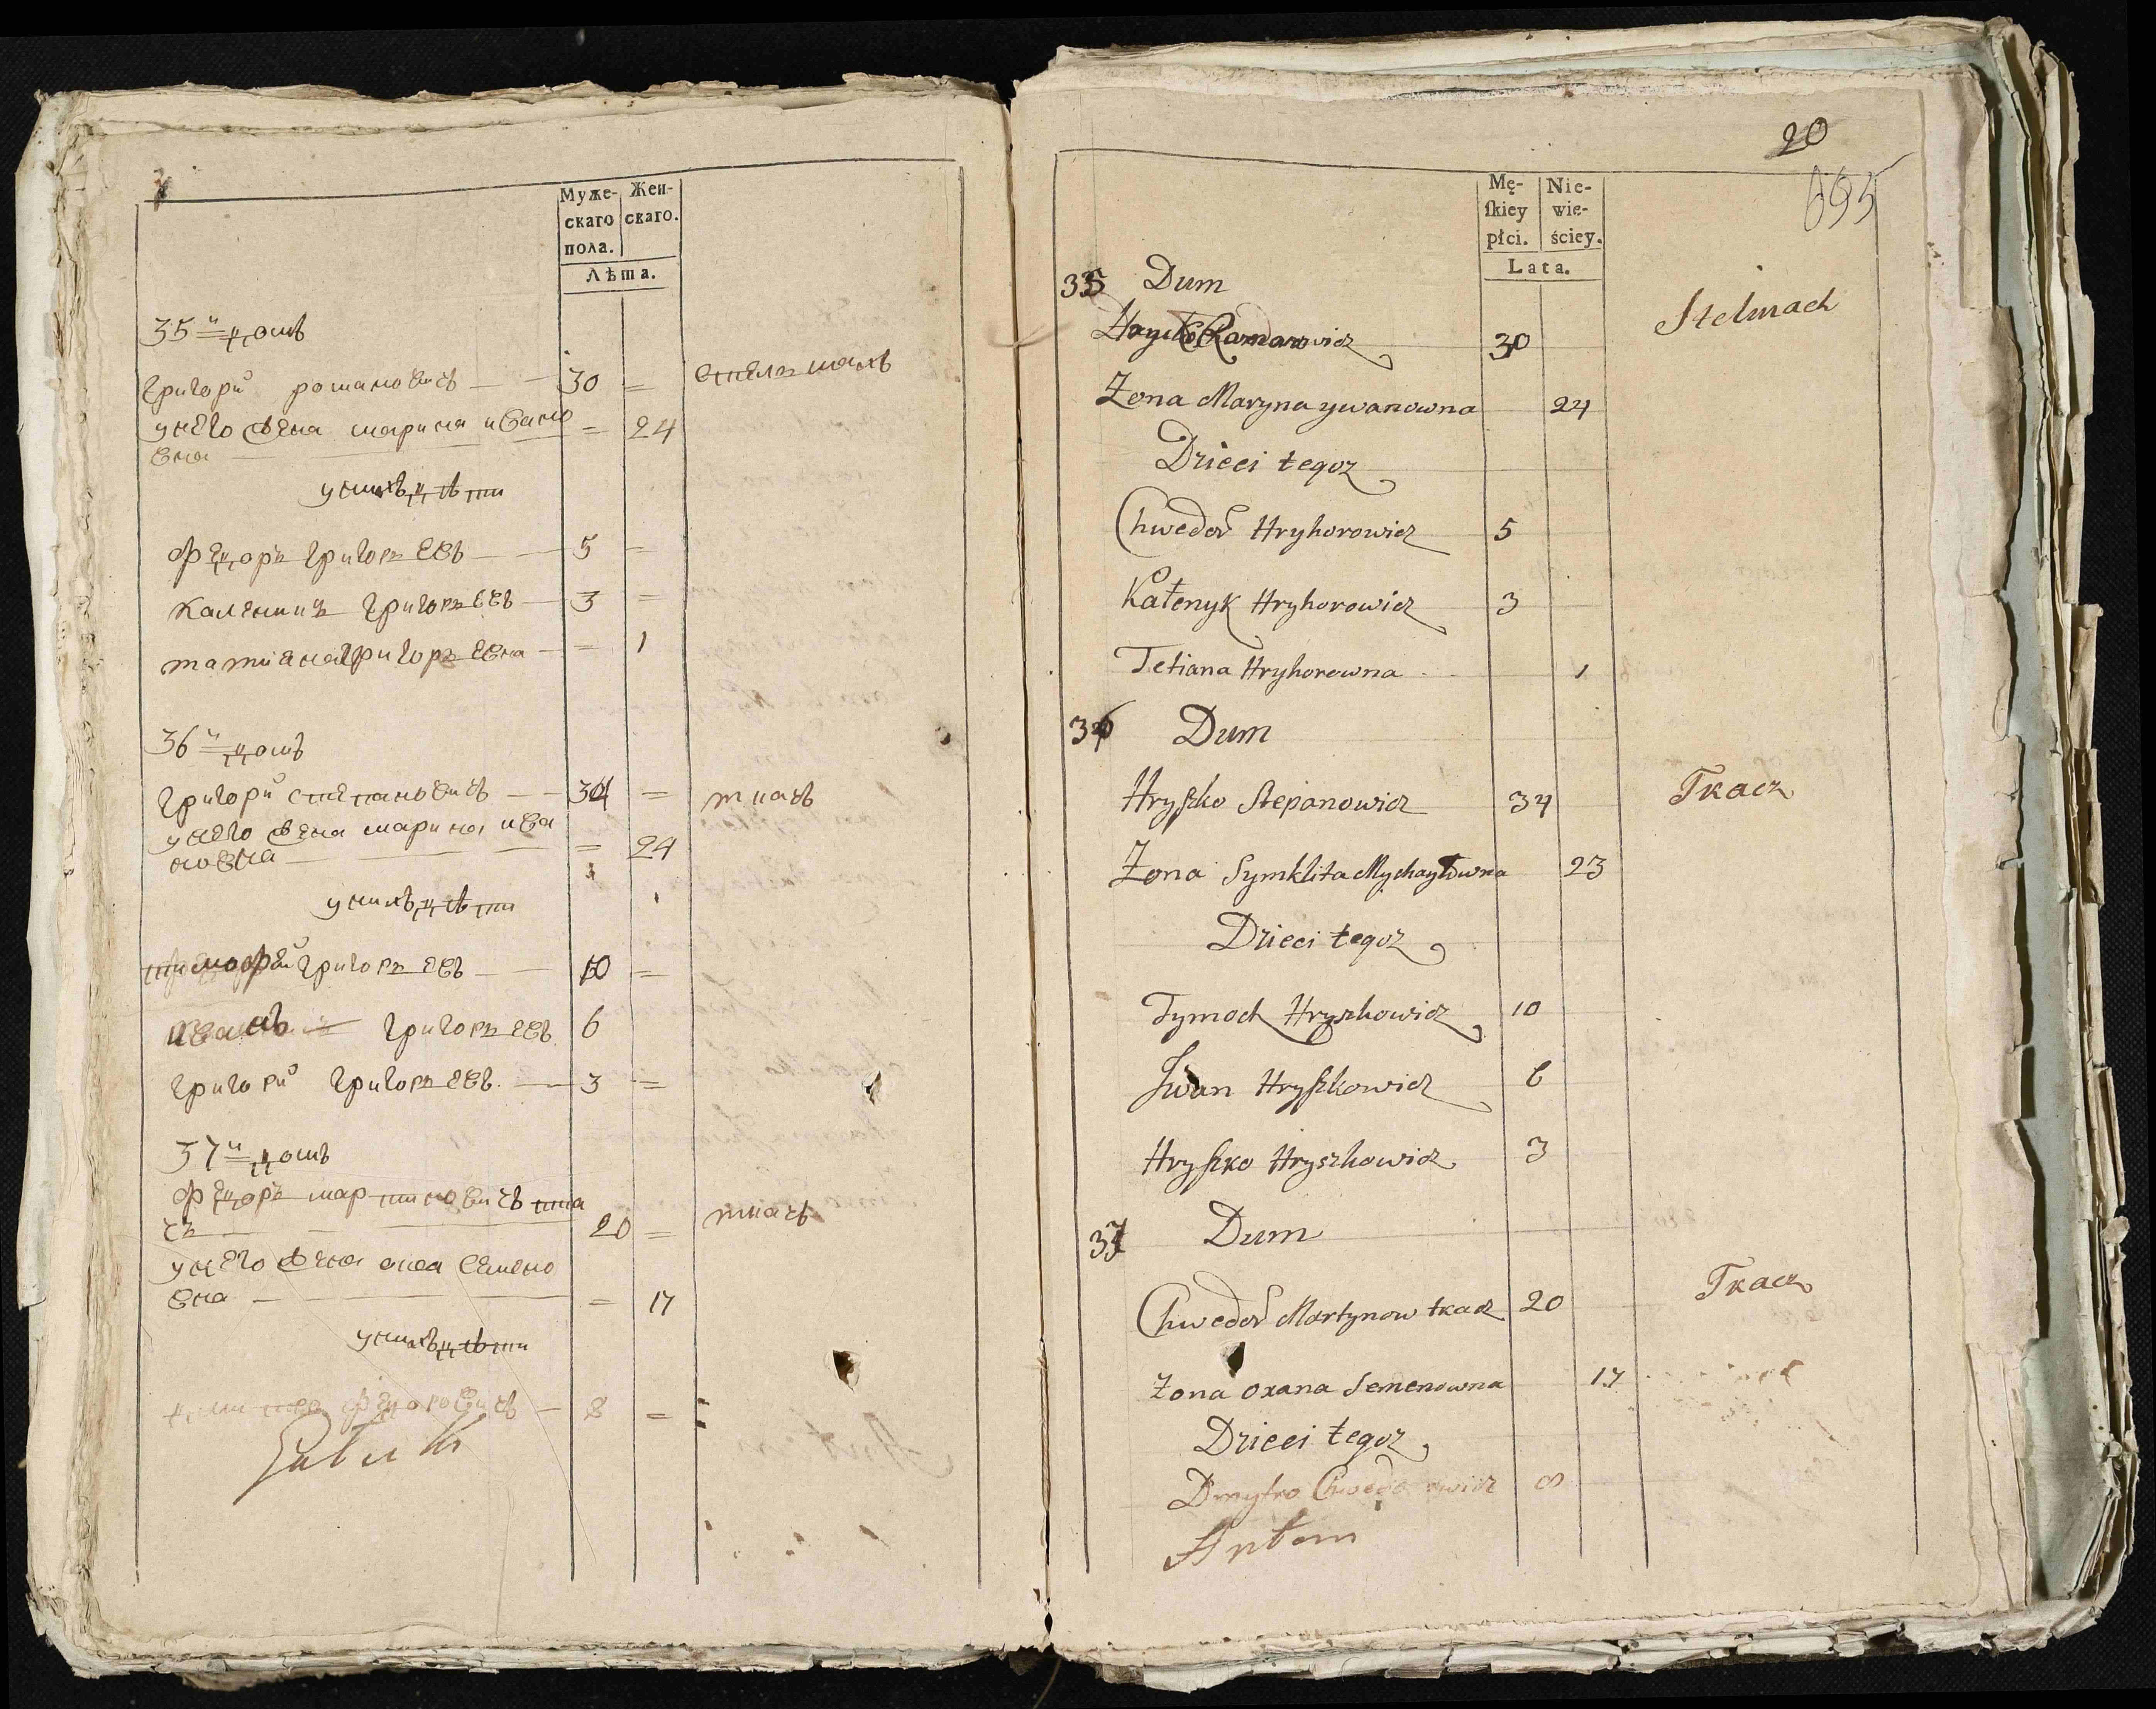 Муже-
скаго
пола.
Жен-
скаго.
Лѣта.
35й домъ
григори романовичъ 30 = стелмахъ
унего жена марина ивано = 24
вна
унихъ дѣти
федоръ григорьевъ 5 =
каленикъ григорьевъ 3 =
татиана григорьевна = 1
36й домъ
григори степановичъ 34 = ткачъ
унего жена марина ива
новна = 24
унихъ дѣти
тимофей григорьевъ 10 =
иванъ григорьевъ 6
григори григорьевъ 3 =
37й домъ
федоръ мартиновичъ тка
чъ 20 = ткачъ
унего жена семено
вна = 17
унихъ дѣти
федоровичъ 8 =
20
695
Mę-
ſkiey
płci.
Nie-
wie-
ściey.
Lata.
35 Dum
Ramanowicz 30 Stelmach
Zona Maryna ywanowna 24
Dzieci tegoz
Chwedor Hryhorowicz 5
Kałenyk Hryhorowicz 3
Tetiana Hryhorowna 1
36 Dum
Hryſzko Stepanowicz 34 Tkacz
Zona Symklita Mychayłowna 23
Dzieci tegoz
Tymoch Hryszkowicz 10
Iwan Hryſzkowicz 6
Hryſzko Hryszkowicz 3
37 Dum
Chwedor Martynow tkacz 20 Tkacz
Zona oxana Semenowna 17
Dzieci tegoz
Dmytro Chwedorowicz 8